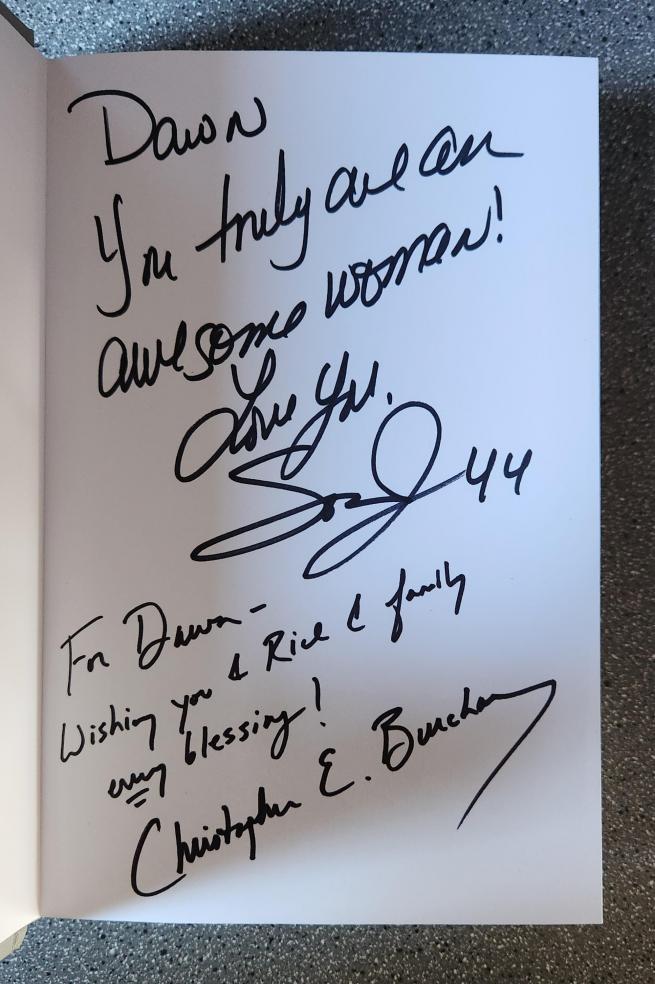 Dawn
You truly are an
awesome woman!
Love You.
44
For Dawn-
Wishing you & Rick & family
every blessing!
Christopher E.